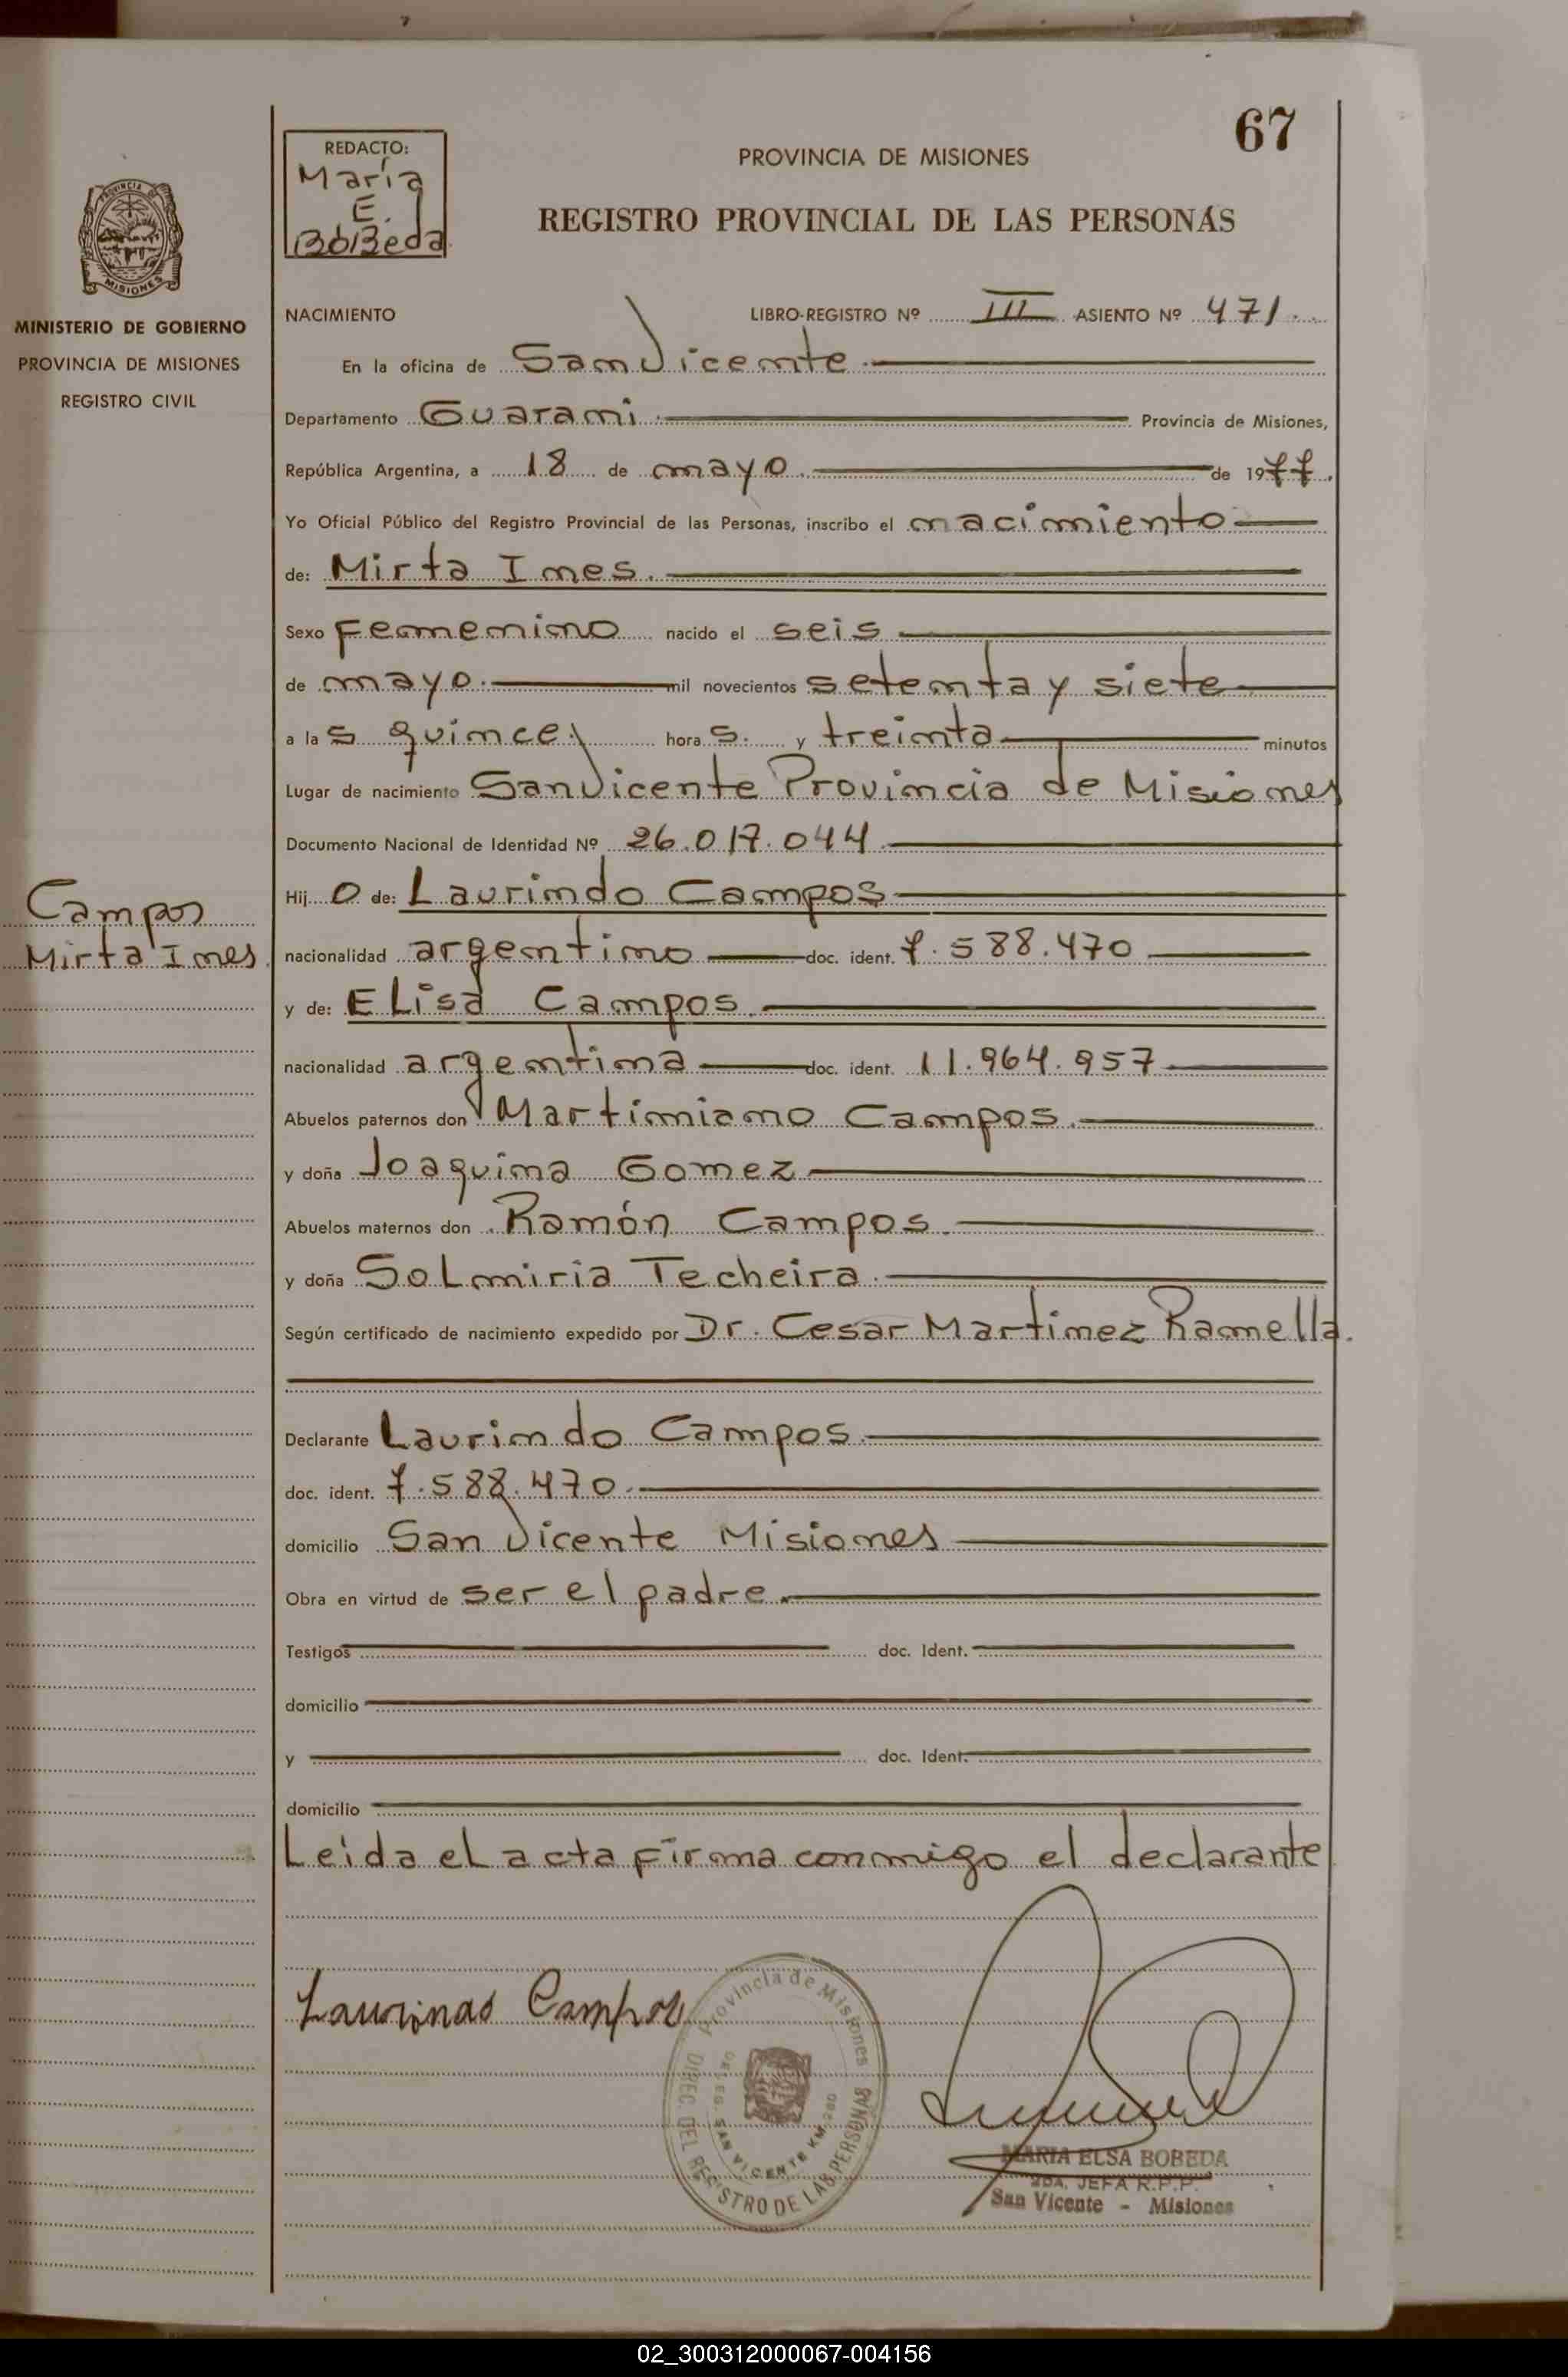 67
REDACTO:
María
E.
BóBeda.
PROVINCIA DE MISIONES
REGISTRO PROVINCIAL DE LAS PERSONAS
PROVINCIA DE
MISIONES
MINISTERIO DE GOBIERNO
PROVINCIA DE MISIONES
REGISTRO CIVIL
NACIMIENTO LIBRO-REGISTRO Nº III ASIENTO Nº 471
En la oficina de San Vicente
Departamento Guarani Provincia de Misiones,
República Argentina, a 18 de mayo de 1977.
Yo Oficial Público del Registro Provincial de las Personas, inscribo el nacimiento
de: Mirta Ines.
Sexo Femenino nacido el seis
de mayo. mil novecientos setenta y siete
a las quince hora s. y treinta minutos
Lugar de nacimiento San Vicente Provincia de Misiones
Documento Nacional de Identidad Nº 26.017.044
Hij o de: Laurindo Campos
Campos
Mirta Ines
nacionalidad argentino doc. ident. 7.588.470
y de: ELisa Campos.
nacionalidad argentina doc. ident. 11.964.957
Abuelos paternos don Martiniano Campos.
y doña Joaquina Gomez
Abuelos maternos don Ramón Campos.
y doña SoLmiria Techeira.
Según certificado de nacimiento expedido por Dr. Cesar Martinez Ramella.
Declarante Laurindo Campos.
doc. ident. 7.588.470.
domicilio San Vicente Misiones
Obra en virtud de ser el padre.
Testigos doc. Ident.
domicilio
y doc. Ident.
domicilio
Leida eL acta firma conmigo el declarante
Laurindo Campos
Provincia de Misiones
DIREC. DEL REGISTRO DE LAS PERSONAS
SAN VICENTE KM. 280
MARIA ELSA BOBEDA
JEFA R.P.P.
San Vicente - Misiones
02_300312000067-004156